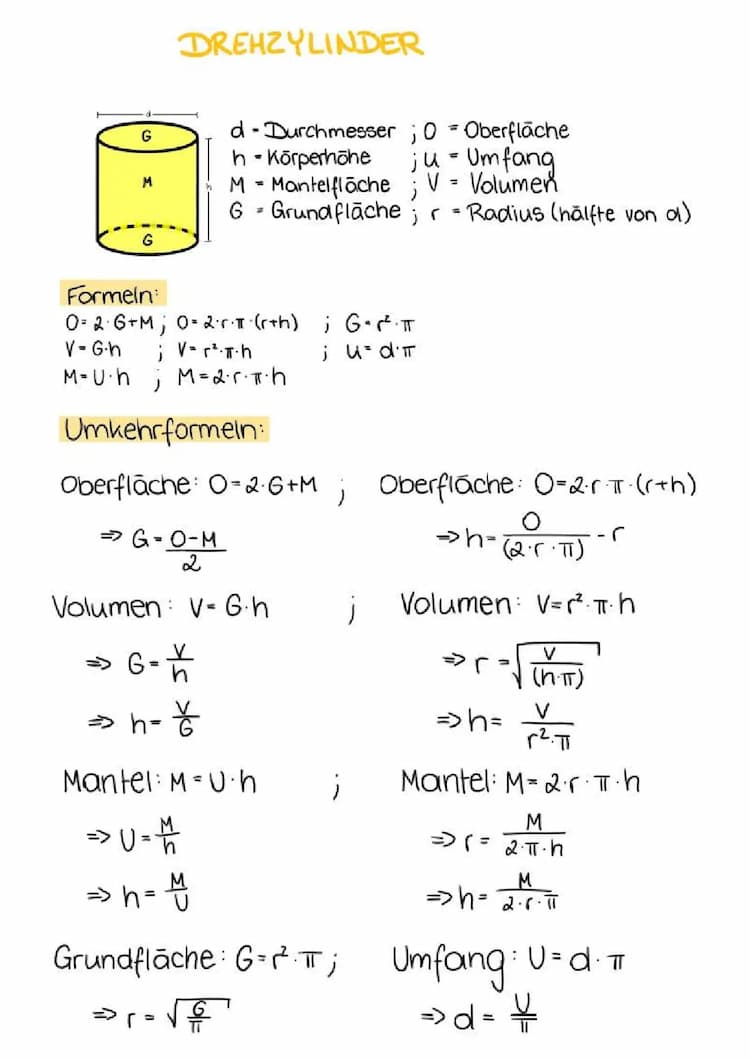 DREHZYLINDER
d
G
M
h
G
d - Durchmesser ; O = Oberfläche
h - Körperhöhe ; u = Umfang
M = Mantelfläche ; V = Volumen
G = Grundfläche ; r = Radius (hälfte von d)
Formeln:
O = 2·G+M ; O = 2·r·π·(r+h) ; G = r²·π
V = G·h ; V = r²·π·h ; u = d·π
M = U·h ; M = 2·r·π·h
Umkehrformeln:
Oberfläche: O = 2·G+M ; Oberfläche: O = 2·r·π·(r+h)
⇒ G = (O-M)/2 ⇒ h = O/(2·r·π) - r
Volumen: V = G·h ; Volumen: V = r²·π·h
⇒ G = V/h ⇒ r = √(V/(h·π))
⇒ h = V/G ⇒ h = V/(r²·π)
Mantel: M = U·h ; Mantel: M = 2·r·π·h
⇒ U = M/h ⇒ r = M/(2·π·h)
⇒ h = M/U ⇒ h = M/(2·r·π)
Grundfläche: G = r²·π ; Umfang: U = d·π
⇒ r = √(G/π) ⇒ d = U/π